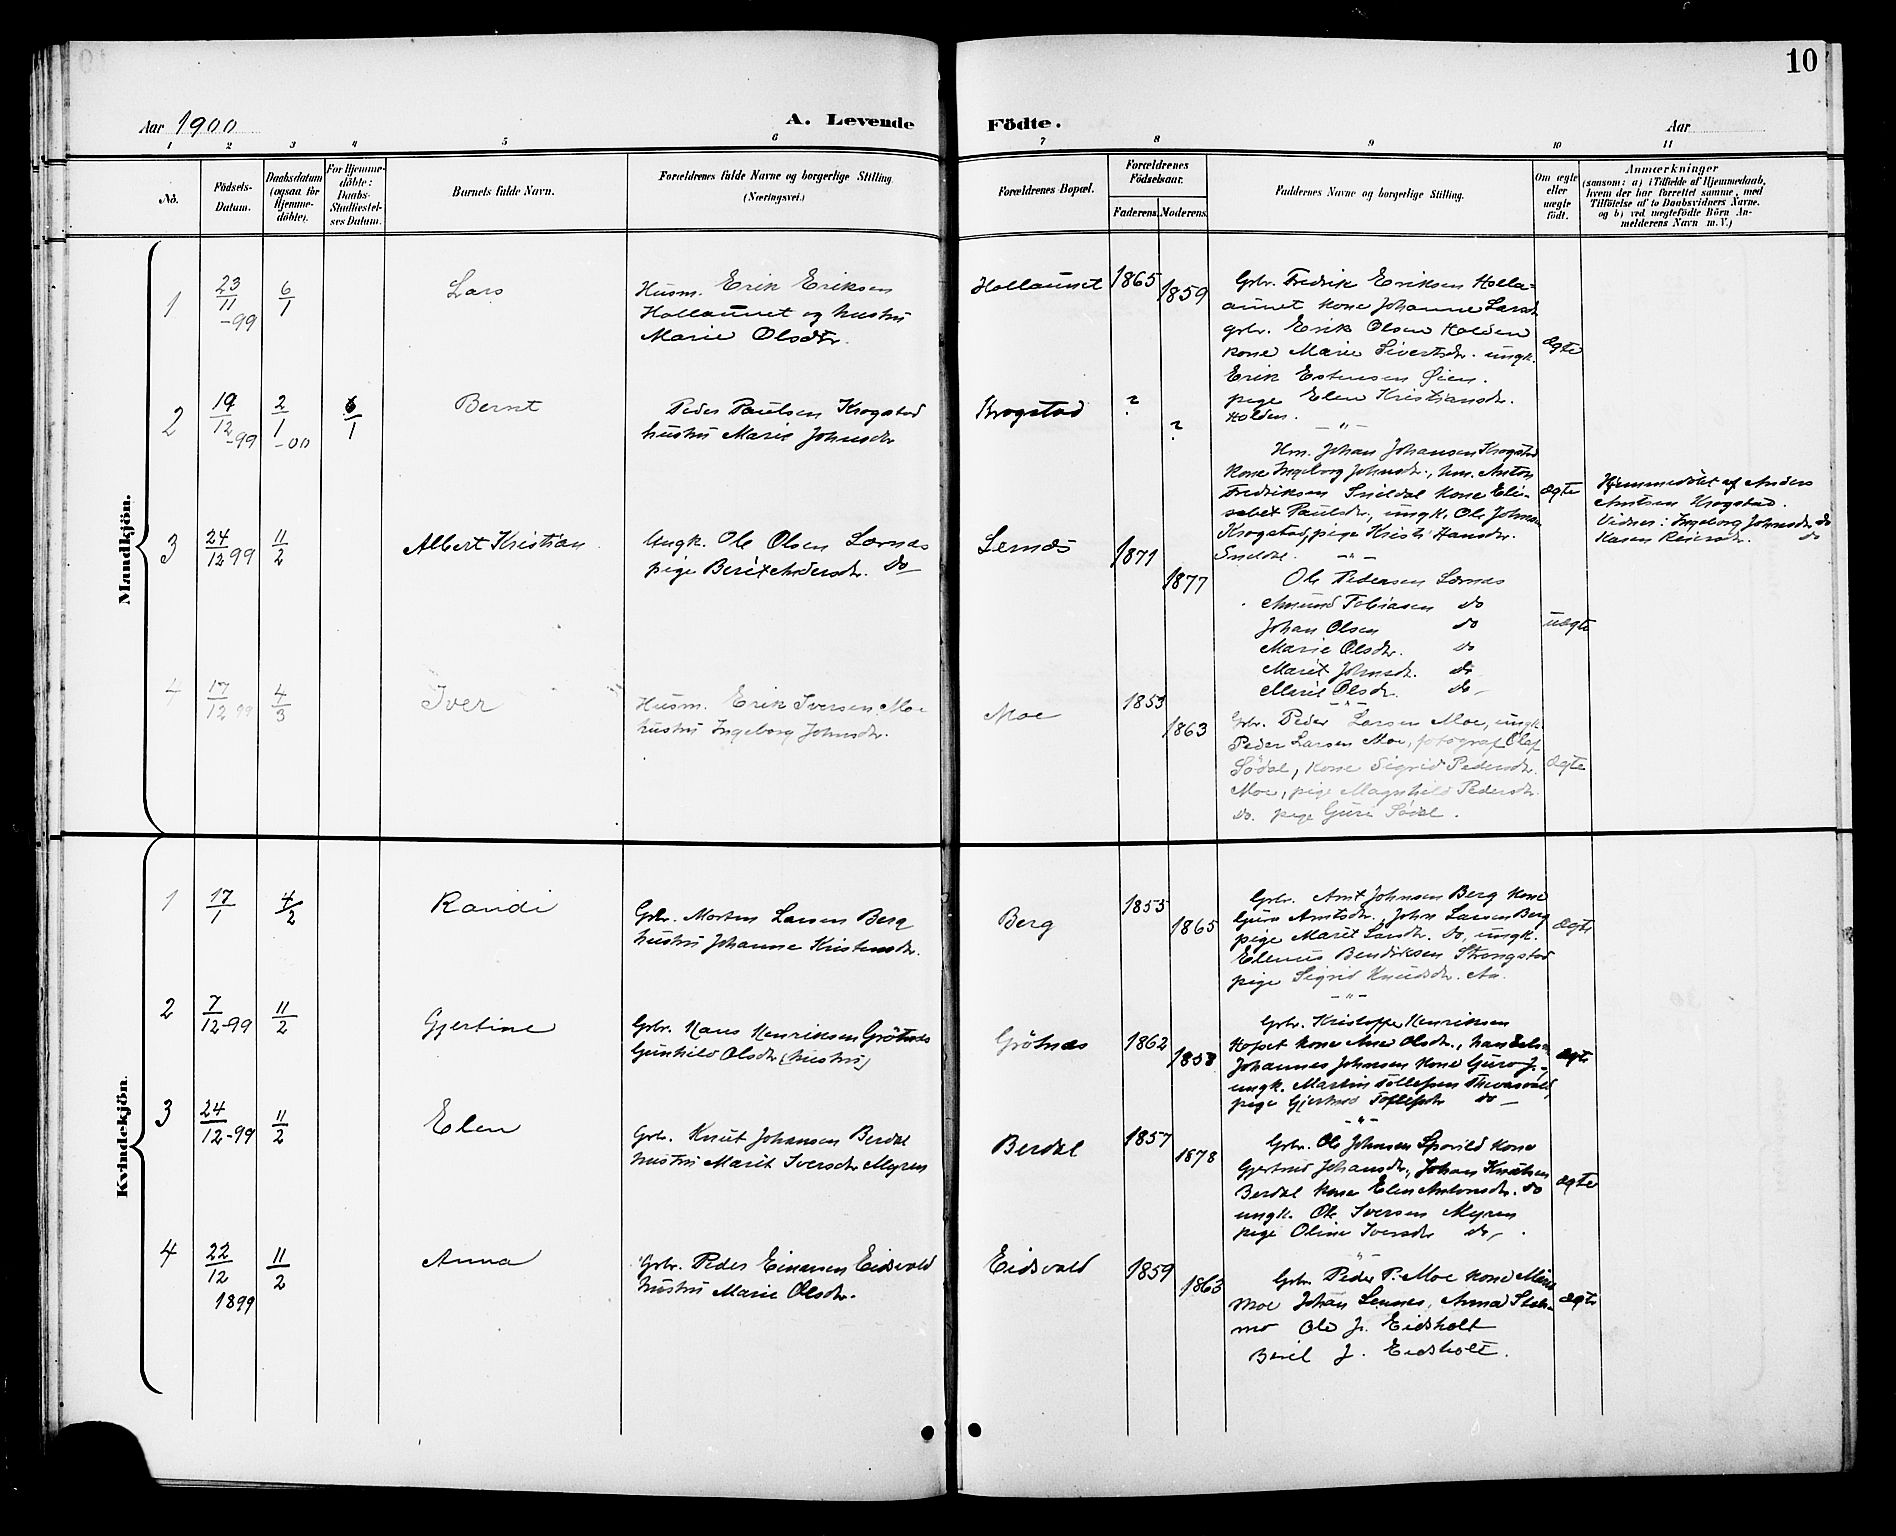 10
Aar 1900
A. Levende Födte.
Aar
1 2 3 4 5 6 7 8 9 10 11
No.
Födsels-
Datum.
Daabsdatum
(ogsaa for
Hjemme-
döbte).
For Hjemme-
döbte:
Daabs-
Stadfæstel-
ses Datum.
Barnets fulde Navn.
Forældrenes fulde Navne og borgerlige Stilling
(Næringsvei.)
Forældrenes Bopæl.
Forældrenes
Födselsaar.
Faderens. Moderens.
Faddernes Navne og borgerlige Stilling.
Om ægte
eller
uægte
födt.
Anmærkninger
(saasom: a) i Tilfælde af Hjemmedaab,
hvem der har forrettet samme, med
Tilföielse af to Daabsvidners Navne,
og b) ved uægtefödte Börn An-
melderens Navn m. V.)
Mandkjön.
1
23
11
-99
6
1
Lars
Husm. Erik Eriksen
Hollaunet og hustru
Marie Olsdtr.
Hollaunet
1865
1859
Gbr. Fredrik Eriksen Holla-
aunet kone Johanne Larsd.
gbr. Erik Olsen Holden
kone Marie Sivertsdr. ungk.
Erik Estensen Øien.
pige Elen Kristiansdr.
Holden.
Ægte
2
19
12-99
2
1
-00
6
1
Bernt
Peder Paulsen Krogstad
hustru Marie Johnsdr
Krogstad
?
?
- " -
Hm. Johan Johansen Krogstad
kone Ingeborg Johnsdr., hm. Anton
Fredriksen Snildal kone Eli-
sabet Paulsdr., ungk. Ole Johnsen
Krogstad, pige Kristi Hansdr.
Snildal.
Ægte
Hjemmedöbt af Anders
Arntsen Krogstad.
Vidner: Ingeborg Johnsdr do
Karen Reiersdr. do
3
24
12 99
11
2
Albert Kristian
Ungk. Ole Olsen Lernæs
pige Berit Andersdr. do
Lernæs
1871
1877
- " -
Ole Pedersen Lernæs
Amund Tobiasen do
Johan Olsen do
Marie Olsdr. do
Marit Johnsdr. do
Marit Olsdr. do -
uægte
4
17
12 99
4
3
Iver
Husm. Erik Iversen Moe
hustru Ingeborg Johnsdr.
Moe
1853
1863
- " -
Gbr. Peder Larsen Moe, ungk.
Peder Larsen Moe, fotograf Olaf
Södal, kone Sigrid Pedersdr.
Moe, pige Magnhild Pedersdr.
do. pige Guri Södal.
Ægte
Kvindekjön.
1
17
1
4
2
Randi
Gbr. Morten Larsen Berg
hustru Johanne Kristensdr.
Berg
1855
1865
Gbr. Arnt Johnsen Berg kone
Guru Arntsdr., John Larsen Berg
pige Marit Larsdr. do, ungk.
Elenus Bendiksen Strengstad
pige Sigrid Knudsdr. Aa.
Ægte
2
7
12-99
11
2
Gjertine
Gbr. Hans Henriksen Grötnæs
Gunhild Olsdr (hustru)
Grötnæs
1862
1858
- " -
Gbr. Kristoffer Henriksen
Hopet kone Ane Olsdr.,
Johannes Johnsen kone Guro J.,
ungk. Martin Tollefsen
pige Gjertrud Tollefsdr do -
Ægte
3
24
12-99
11
2
Elen
Gbr. Knut Johansen Berdal
hustru Marit Iversdr Myren
Berdal
1857
1878
- " -
Gbr. Ole Johnsen Sporild kone
Gjertrud Johansdr., Johan Knutsen
Berdal kone Elen Antonsdr. do
ungk. Ole Iversen Myren
pige Oline Iversdr do -.
Ægte
4
22
12
1899
11
2
Anna
Gbr. Peder Einarsen Eidsvold
hustru Marie Olsdr.
Eidsvold
1859
1863
"
Gbr. Peder P. Moe kone
Moe Johan Lennes, Anna
mo Ole J. Eidsholt
Berit J. Eidsholt.
Ægte